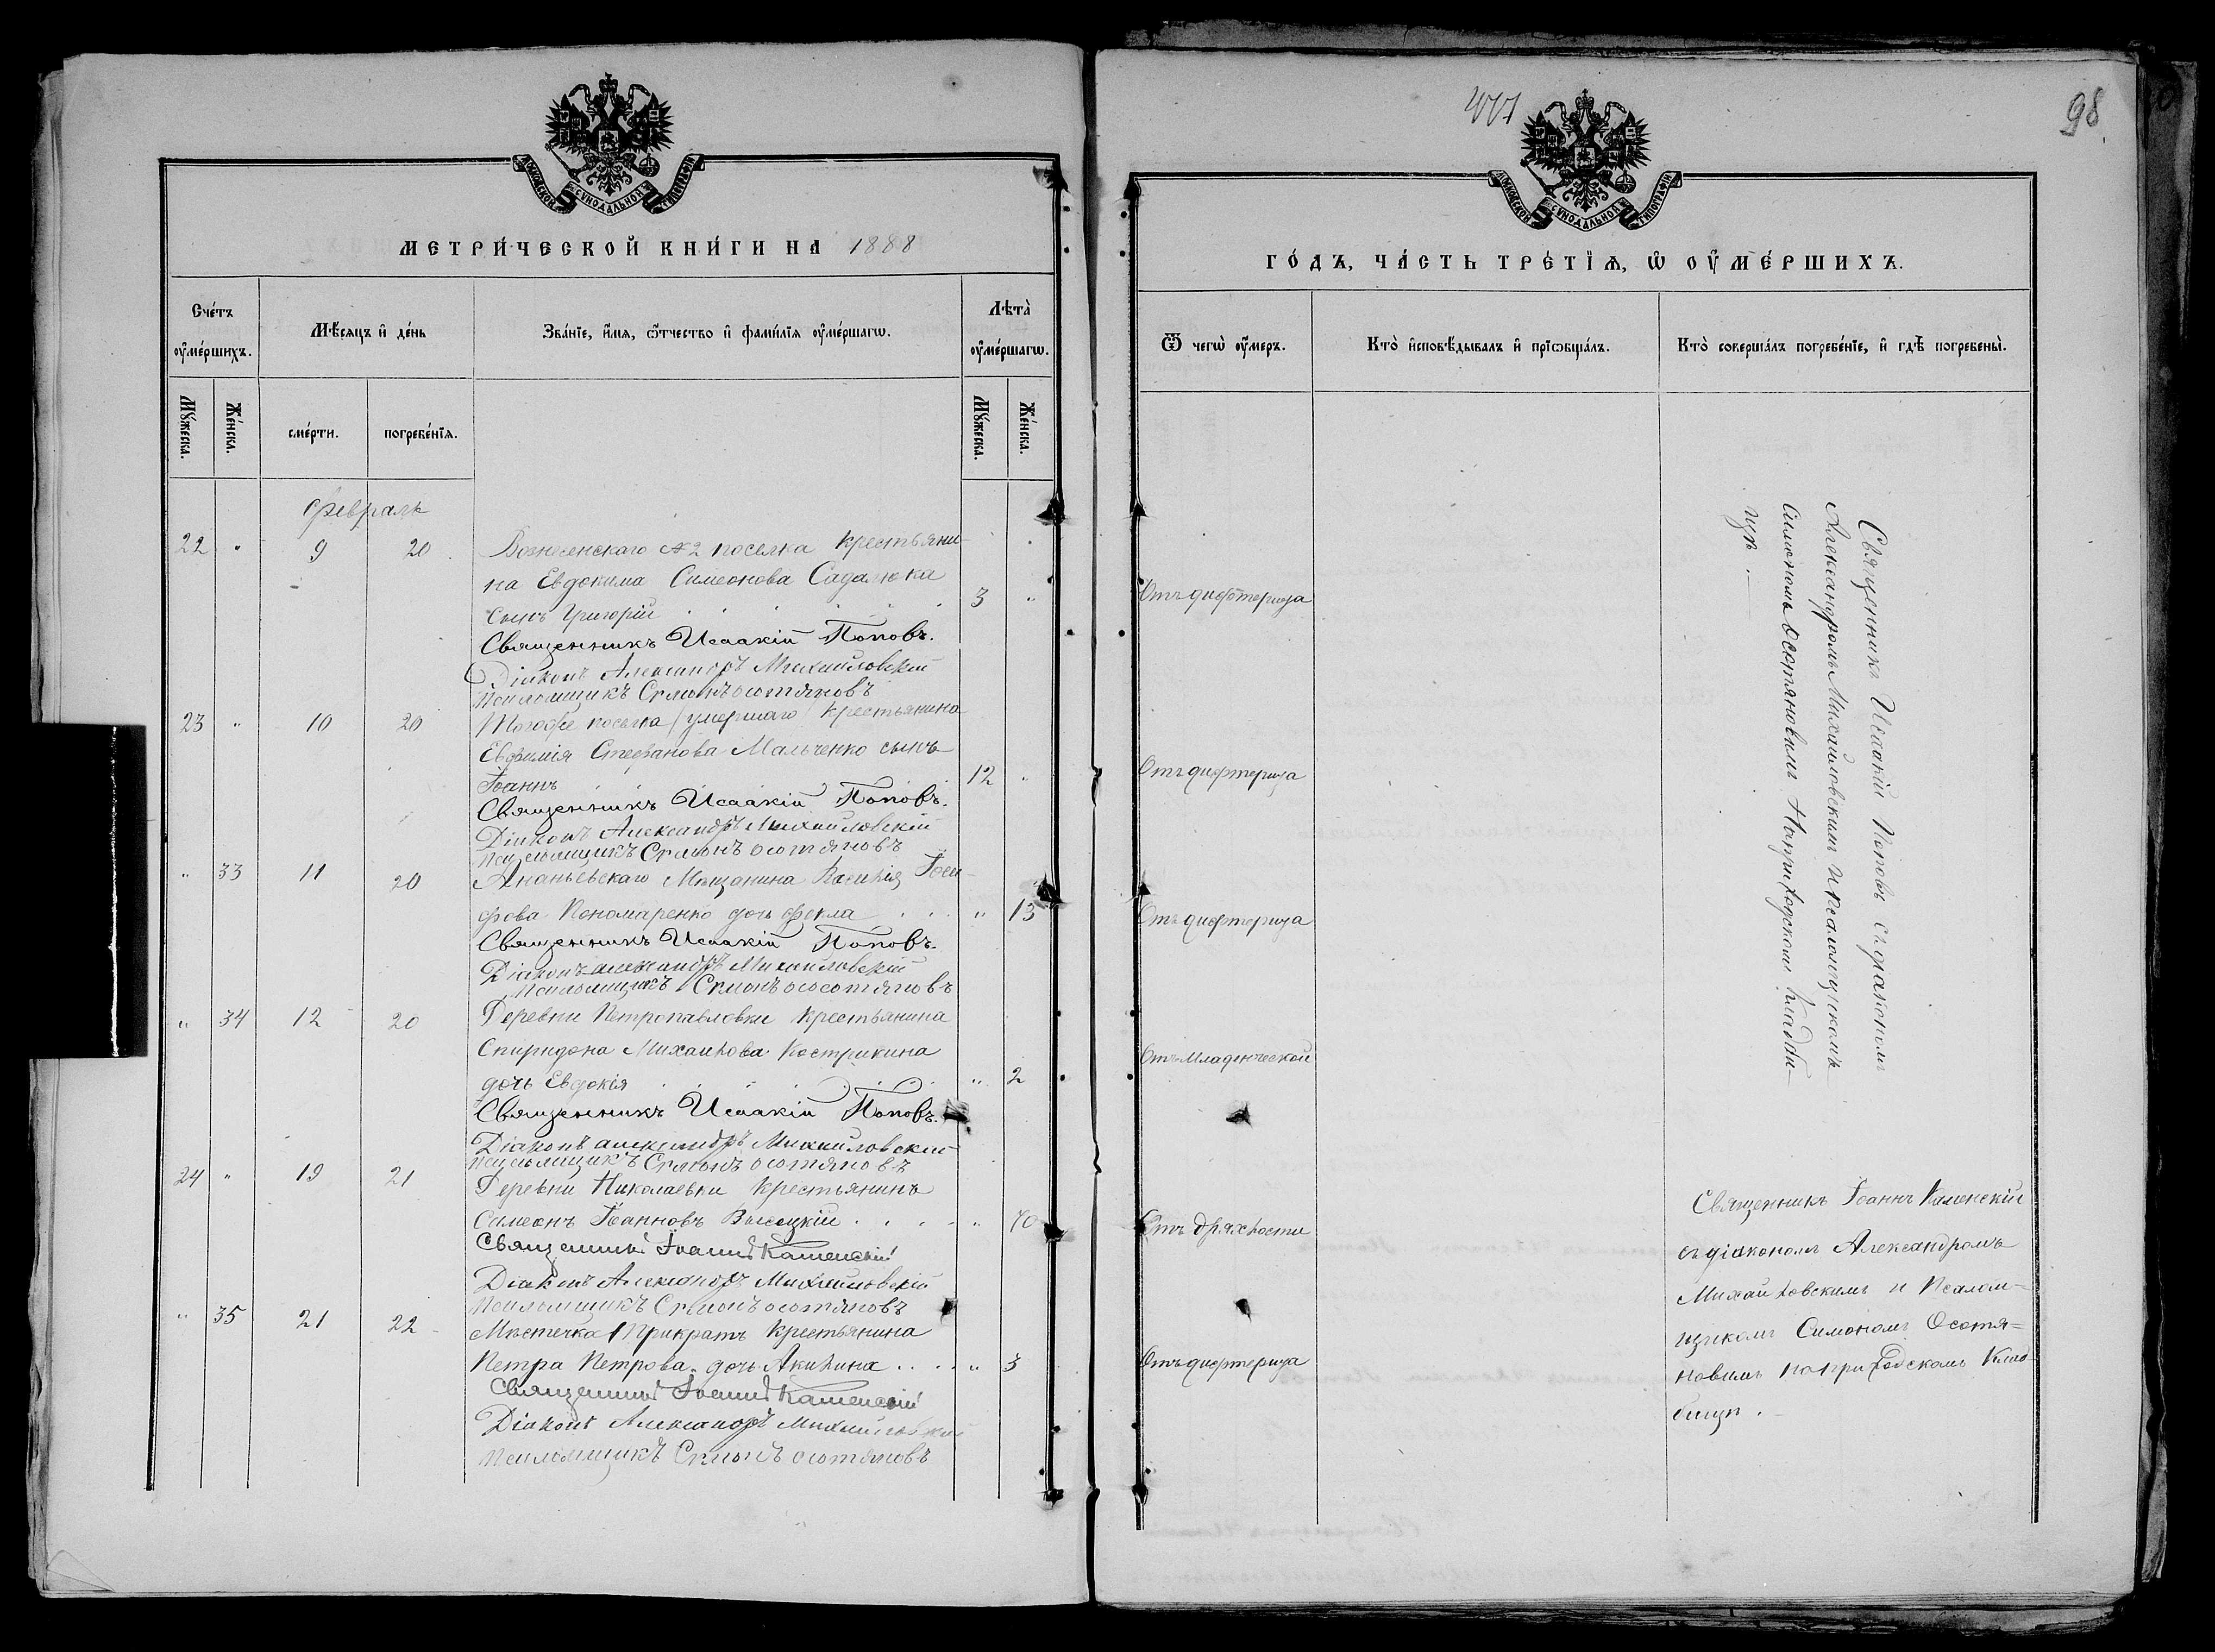 МОСКОВСКОЙ СѴНОДАЛЬНОЙ ТИПОГРАФІИ
МЕТРИ́ЧЕСКОЙ КНИ́ГИ НА 1888
Сче́тъ ᲂу҆ме́ршихъ.
Мѣ́сяцъ и҆ де́нь
Зва́нїе, и҆́мя, ѻ҆́тчество и҆ фами́лїя ᲂу҆ме́ршагѡ.
Лѣта̀ ᲂу҆ме́ршагѡ.
Мꙋ́жеска.
Же́нска.
сме́рти.
погребе́нїя.
Мꙋ́жеска.
Же́нска.
Февраль
22 " 9 20 Вознесенскаго №2 поселка крестьяни-
на Евдокима Симеонова Садалюка
сынъ Григорій 3 "
Священникъ Исаакій Поповъ.
Діаконъ Александръ Михайловскій
Псаломщикъ Симонъ Осотяновъ
23 " 10 20 Тогоже поселка умершаго крестьянина
Евфимія Стефанова Мальченко сынъ
Іоаннъ 12 "
Священникъ Исаакій Поповъ.
Діаконъ Александръ Михайловскій
Псаломщикъ Симонъ Осотяновъ
" 33 11 20 Ананьевскаго Мѣщанина Василія Іоси-
фова Пономаренко дочь Фекла " 13
Священникъ Исаакій Поповъ.
Діаконъ Александръ Михайловскій
Псаломщикъ Симонъ Осотяновъ
" 34 12 20 Деревни Петропавловки крестьянина
Спиридона Михайлова Кострикина
дочь Евдокія " 2
Священникъ Исаакій Поповъ.
Діаконъ Александръ Михайловскій
Псаломщикъ Симонъ Осотяновъ
24 " 19 21 Деревни Николаевки крестьянинъ
Симеонъ Іоанновъ Высоцкій " 70
Священникъ Іоаннъ Каменскій
Діаконъ Александръ Михайловскій
Псаломщикъ Симонъ Осотяновъ
" 35 21 22 Мѣстечка Прикратъ крестьянина
Петра Петрова дочь Акилина " 3
Священникъ Іоаннъ Каменскій
Діаконъ Александръ Михайловскій
Псаломщикъ Симонъ Осотяновъ
98
МОСКОВСКОЙ СѴНОДАЛЬНОЙ ТИПОГРАФІИ
ГО́ДЪ, ЧА́СТЬ ТРЕ́ТЇѦ, Ѡ҆ ОУ҆МЕ́РШИХЪ.
Ѿ чегѡ̀ ᲂу҆́меръ.
Кто̀ и҆сповѣ́дывалъ и҆ прїѡбща́лъ.
Кто̀ соверша́лъ погребе́нїе, и҆ гдѣ̀ погребены̀.
Отъ дифтерита
Отъ дифтерита
Отъ дифтерита
Отъ Младенческой
Отъ дряхлости
Отъ дифтерита
Священникъ Исаакій Поповъ съ діакономъ
Александромъ Михайловскимъ и псаломщикомъ
Симономъ Осотяновымъ На приходскомъ кладби-
щѣ.
Священникъ Іоаннъ Каменскій
съ діакономъ Александромъ
Михайловскимъ и Псалом-
щикомъ Симономъ Осотя=
новымъ на приходскомъ Клад-
бищѣ.